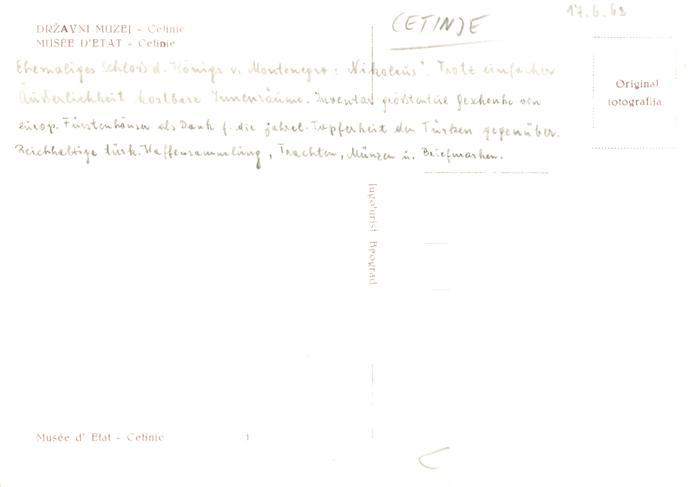 17.6.63
CETINJE
DRŽAVNI MUZEJ - Cetinie
MUSÉE D'ETAT - Cetinie
Ehemaliges Schloß d. Königs v. Montenegro: Nikolaus". Trotz einfacher
Äußerlichkeit kostbare Innenräume. Inventar größtenteils Geschenke von
europ. Fürstenhäuser als Dank f. die jahrel. Tapferheit den Türken gegenüber.
Reichhaltige türk. Waffensammlung, Trachten, Münzen u. Briefmarken.
Original
fotografija
Jugoturist Beograd
Musée d' Etat - Cetinie
1